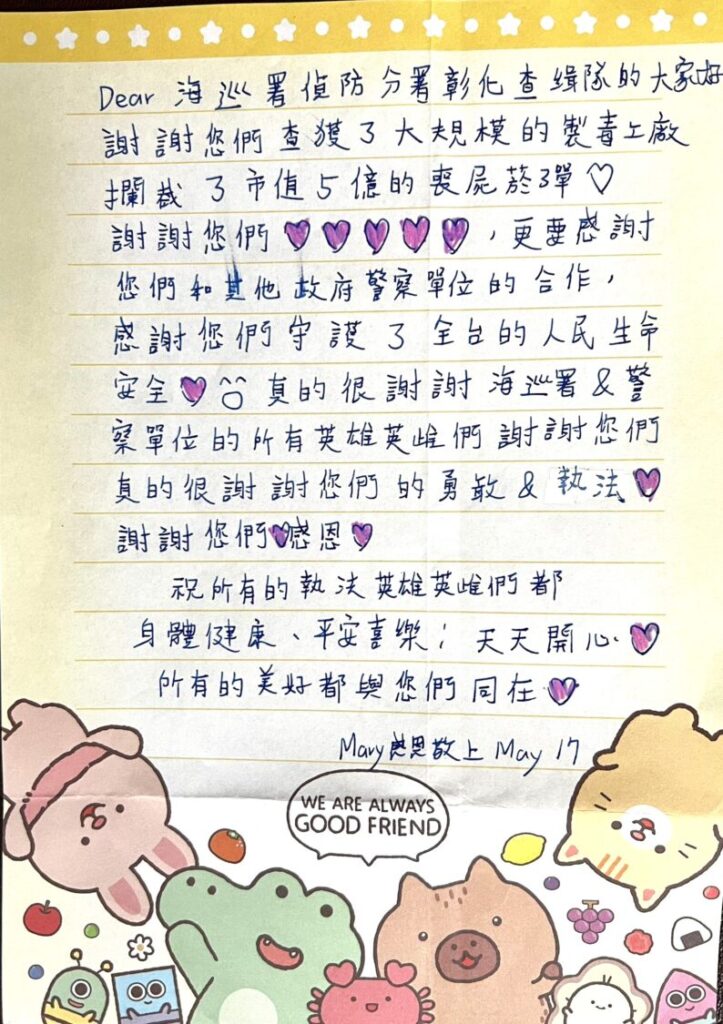 Dear 海巡署偵防分署彰化查緝隊的大家好
謝謝您們查獲了大規模的製毒工廠
攔截了市值5億的喪屍菸彈♡
謝謝您們♥♥♥♥♥，更要感謝
您們和其他政府警察單位的合作，
感謝您們守護了全台的人民生命
安全♥ 真的很謝謝海巡署&警
察單位的所有英雄英雌們謝謝您們
真的很謝謝您們的勇敢&執法♥
謝謝您們♥感恩♥
祝所有的執法英雄英雌們都
身體健康、平安喜樂；天天開心♥
所有的美好都與您們同在♥
Mary感恩敬上 May 17
WE ARE ALWAYS
GOOD FRIEND